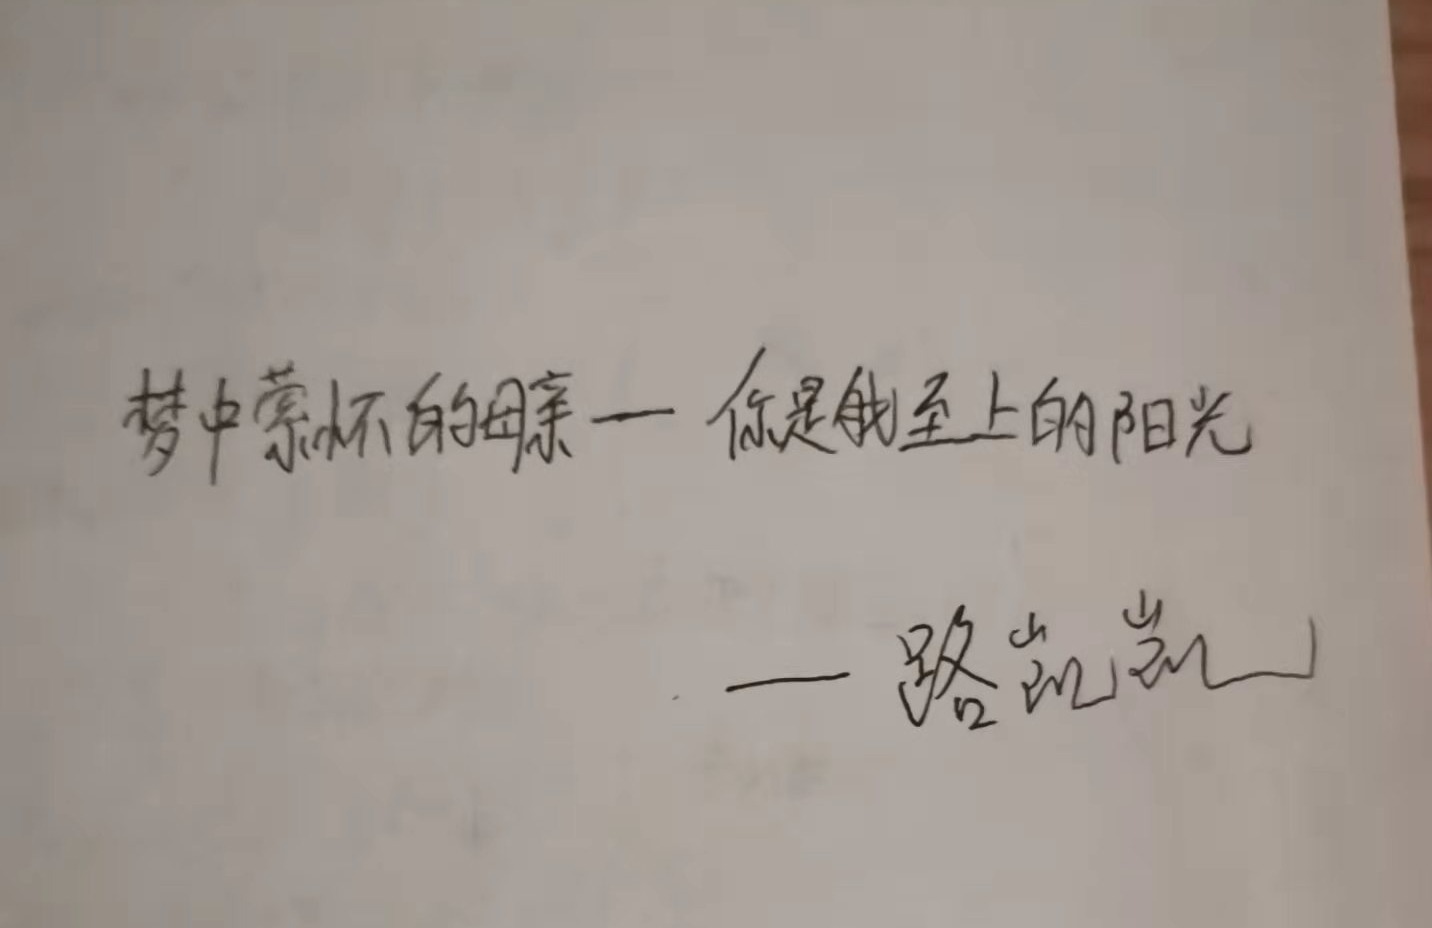 梦中萦怀的母亲—你是我至上的阳光
—路凯凯